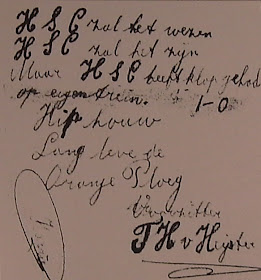 HSC zal het wezen
HSC zal het zijn
Maar HSC heeft klop gehad
op eigen trein. 1-0
Hip houw
Lang leve de
Oranje Ploeg
Voorzitter
T H v Heijster